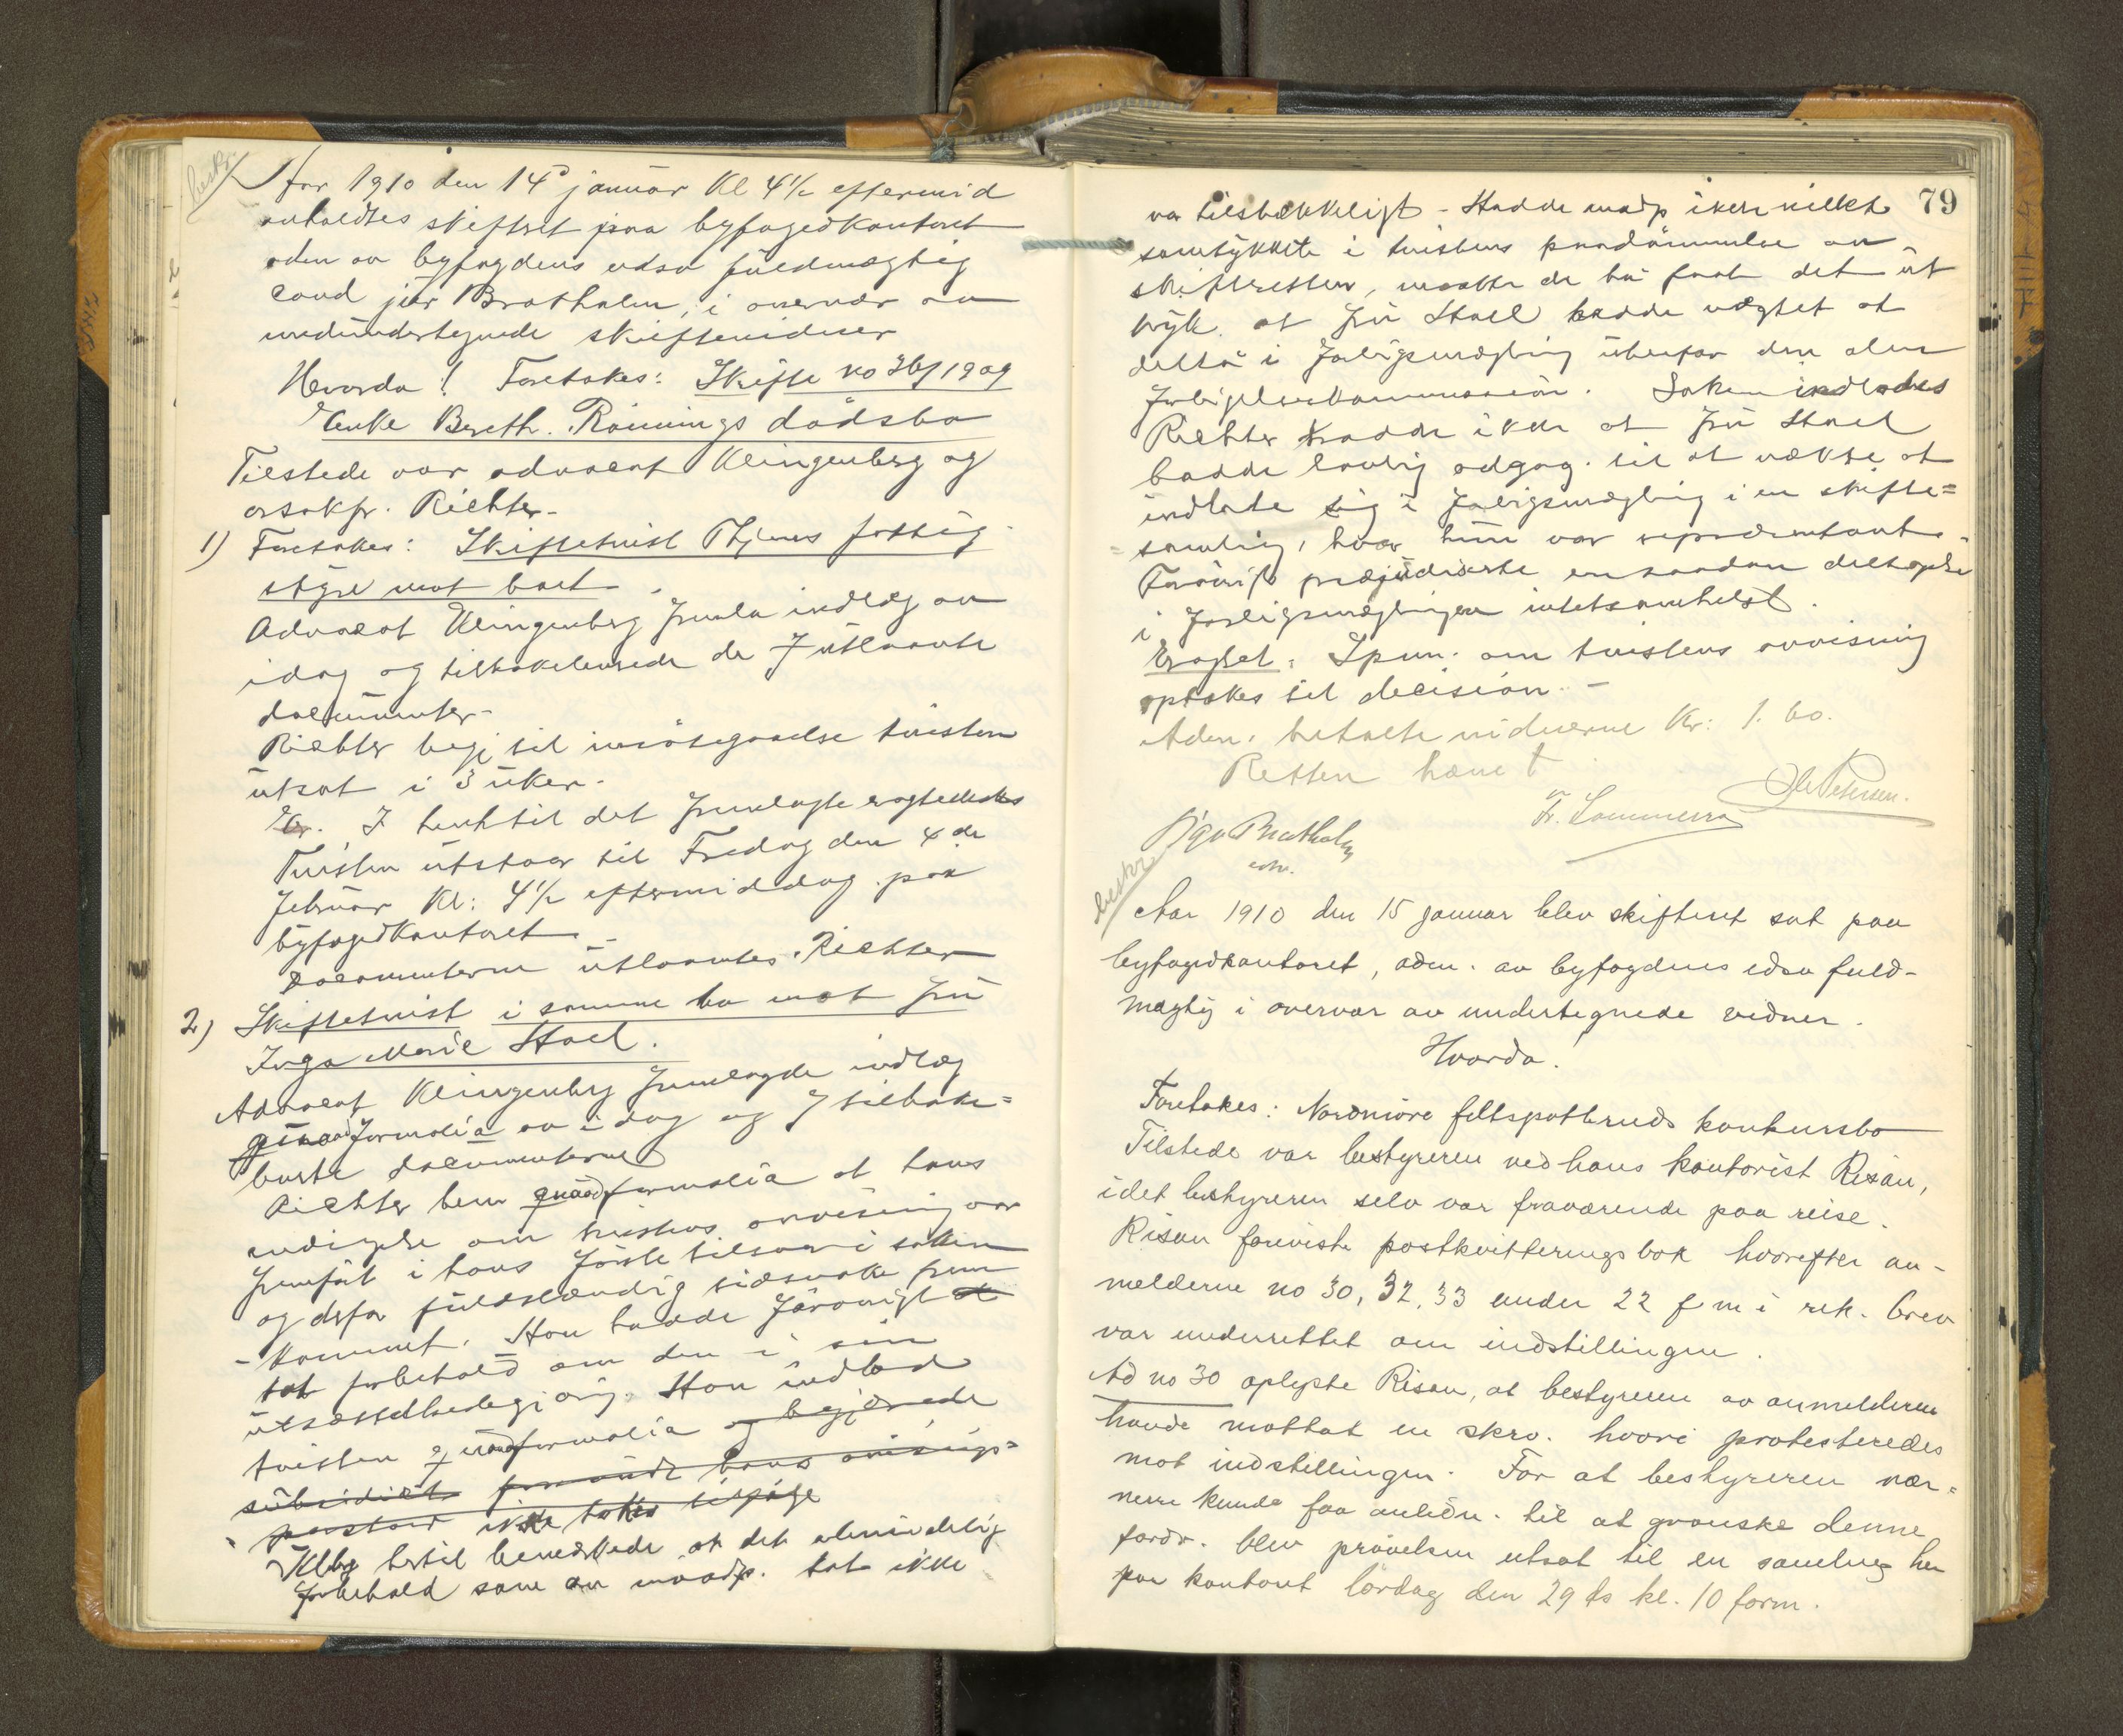 beskr.
Aar 1910 den 14de januar Kl 4½ eftermid
anholdtes skifteret paa byfogedkontoret
adm av byfogdens edsv fuldmægtig
cand jur Bratholm, i overvær av
medundertegnede skiftevidner
Hvorda! Foretokes: Skifte no 36/1909
Enke Bereth. Rönnings dödsbo
Tilstede var advocat Klingenberg og
orsakfr. Richter.-
1) Foretokes: Skiftetvist Thjems fattig
styre mot boet.
Advocat Klingenberg fremla indlæg av
idag og tilbakeleverede de 7 utlaante
documenter-
Richter begj til imötegaaelse tvisten
utsat i 3 uker.-
Er. I henh til det fremlagte eragtedes
Tvisten utstaar til Fredag den 4de
februar Kl: 4½ eftermiddag paa
byfogedkontoret
Documenterne utlaantes Richter
2) Skiftetvist i samme bo mot fru
Inga Marie Stael.
Advocat Klingenberg fremlagde indlæg
quoad formalia av i dag og 7 tilbake=
leverte documenterne
Richter bem quoad formalia at hans
indsigelse om tvistens avvisning var
fremsat i hans förste tilsvar i saken
og derfor fuldstændig tidsnok frem
-kommet. Han hadde forövrigt
tat forbehold om den i sin
utsættelsesbegjæring. Han indlod
tvisten quoad formalia og begjærede
subsidiært hans avisnings=
paastand ikke tokes tilfölge
Klbg hertil bemerkede at det almindelig
forbehold som av modp. tat ikke
79
var tilstrækkeligt - Hadde modp ikke villet
samtykket i tvistens paadömmelse av
skifteretten, maatte de ha faat det ut
tryk. at fru Stael hadde vægret at
delta i forligsmægling utenfor den alm
forligelseskommission. Saken indlodes
Richter trodde ikke at fru Stael
hadde lovlig adgag. til at vækre at
indlate sig i forligsmægling i en skifte=
=samling, hvor hun var repræsentant.
Forövrigt præjudiserte en saadan deltagelse
i forligsmæglingen intetsomhelst.
Eragtet: Spm. om tvistens avvisning
optokes til decision.-
Adm. betalte vidnerne Kr: 1.60.
Retten hævet
Sigv Bratholm
edsv.
Fr. Sommerra
Ole Petersen.
beskr.
Aar 1910 den 15 januar blev skifteret sat paa
byfogedkontoret, adm. av byfogdens edsv fuld-
mægtig i overvær av undertegnede vidner.
Hvorda!
Foretokes: Nordmöre feltspatbruds konkursbo
Tilstede var bestyreren ved hans kontorist Risan,
idet bestyreren selv var fraværende paa reise.
Risan foreviste postkvitteringsbok hvorefter an-
melderne no 30, 32, 33 under 22 f m i rek. brev
var underrettet om indstillingen.
Ad no 30 oplyste Risan, at bestyreren av anmelderen
havde mottat en skrv. hvori protesteredes
mot indstillingen. For at bestyreren nær-
mere kunde faa anledn. til at granske denne
fordr. blev prövelsen utsat til en samling her
paa kontoret lördag den 29 ds kl. 10 form.